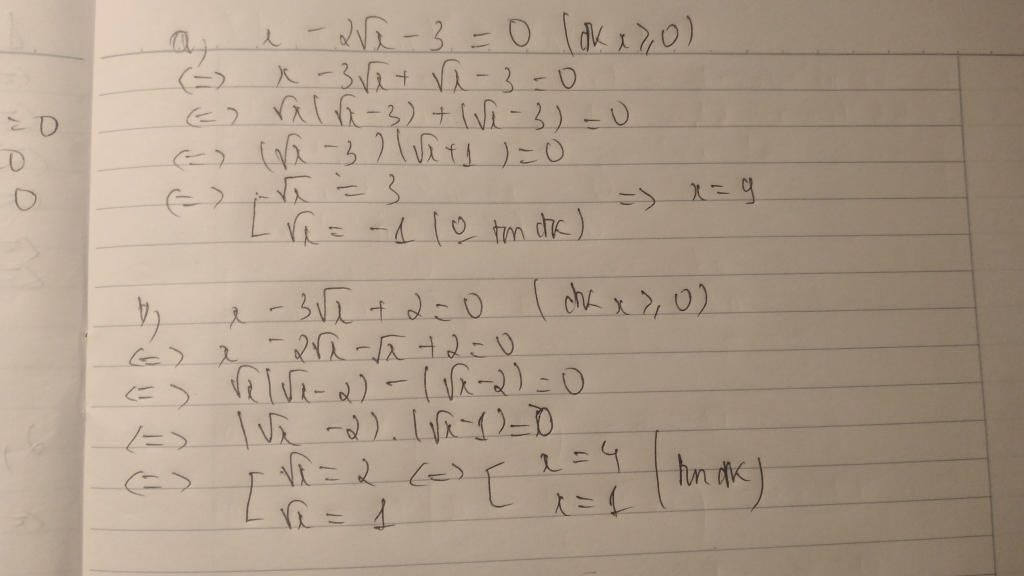 = 0
0
0
a, x - 2√x - 3 = 0 (đk x ≥ 0)
<=> x - 3√x + √x - 3 = 0
<=> √x(√x - 3) + (√x - 3) = 0
<=> (√x - 3)(√x + 1) = 0
<=> [ √x = 3 => x = 9
√x = -1 (0 tm đk)
b, x - 3√x + 2 = 0 (đk x ≥ 0)
<=> x - 2√x - √x + 2 = 0
<=> √x(√x - 2) - (√x - 2) = 0
<=> (√x - 2).(√x - 1) = 0
<=> [ √x = 2 <=> [ x = 4 (tm đk)
√x = 1 x = 1